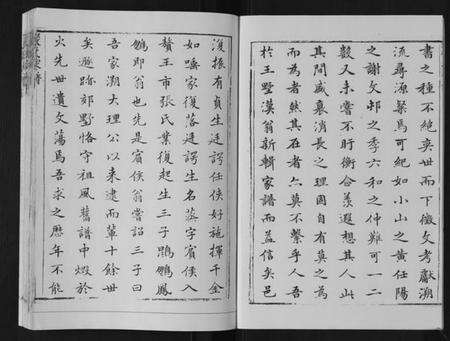 書之種不絕奕世而下徵文考獻溯
流尋源槩焉可紀如小山之黃任陽
之謝文邨之季六和之仲難可一二
數又未嘗不盱衡合美遐想其人此
其間盛衰消長之理固自有莫之為
而為者然其在者亦莫不繫乎人吾
於王墅漢翁新輯家譜而益信矣邑
後振有貞生廷諤任俠好施揮千金
如唾家復落廷諤生名蓀字賓侯入
贅王市張氏業復起生三子鵾鵬鳳
鵾即翁也先是賓侯翁嘗詔三子曰
吾家溯大理公以來逮而草十餘世
矣旅踏郊墅恪守祖風舊譜中燬於
火先世遺文蕩焉吾求之歷年不能